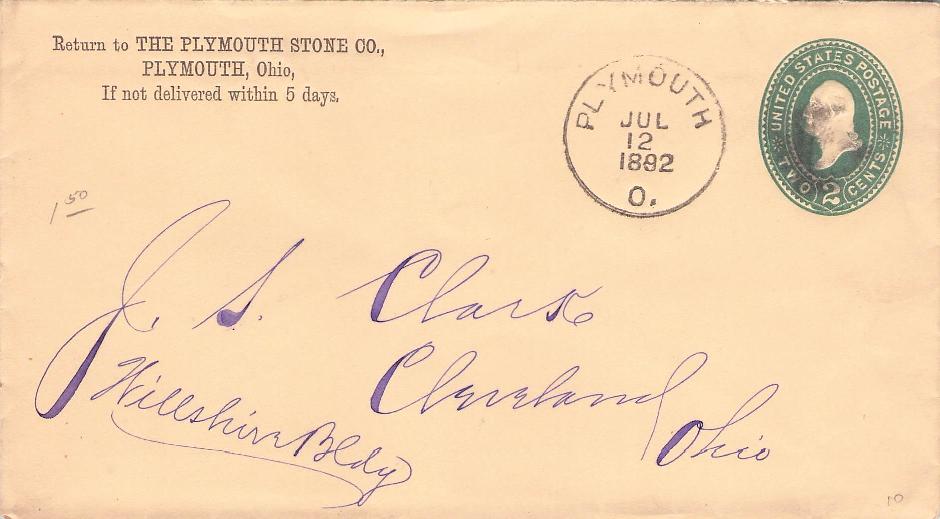 Return to THE PLYMOUTH STONE CO.,
PLYMOUTH, Ohio,
If not delivered within 5 days.
PLYMOUTH
JUL
12
1892
O.
UNITED STATES POSTAGE
TWO 2 CENTS
1 50
J. S. Clark
Cleveland
Ohio
Willshire Bldg
10